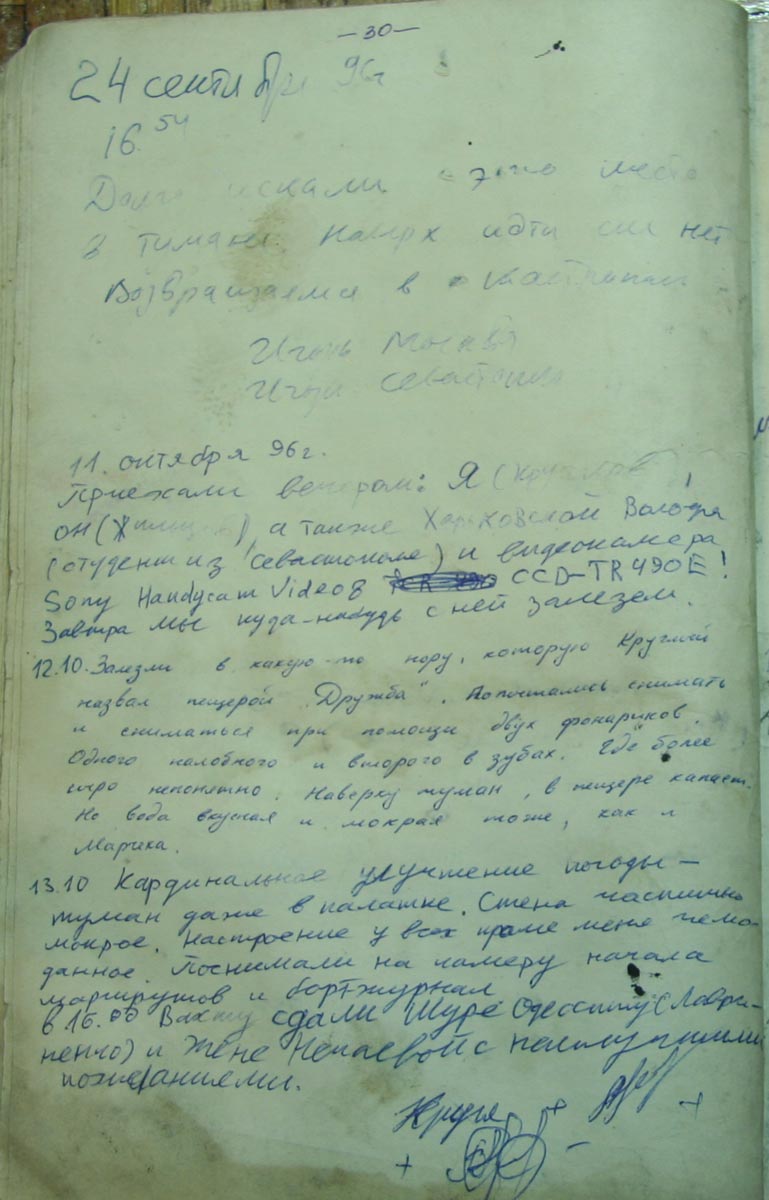 —30—
24 сентября 96г
16.54
Долго искали это место
в тумане. Наверх идти сил нет
Возвращаемся в
Игорь Москва
Игорь Севастополь
11. октября 96г.
Приехали вечером: Я (Круглов)
он (), а также Харьковской Володя
(студент из Севастополе) и видеокамера
Sony Handycam Video8 CCD-TR490E!
Завтра мы куда-нибудь с ней залезем.
12.10. Залезли в какую-то нору, которую Круглый
назвал пещерой „Дружба". Попытались снимать
и сниматься при помощи двух фонариков.
Одного налобного и второго в зубах. Где более
сыро непонятно. Наверху туман, в пещере капает.
Но вода вкусная и мокрая тоже, как и
Маричка.
13.10 Кардинальное улучшение погоды —
туман даже в палатке. Стена частично
мокрое. Настроение у всех кроме меня чемо-
данное. Поснимали на камеру начала
маршрутов и бортжурнал
в 16.00 Вахту сдали Шуре Одесситу (Лаври-
ненко) и Жене с наилучшими
пожеланиями.